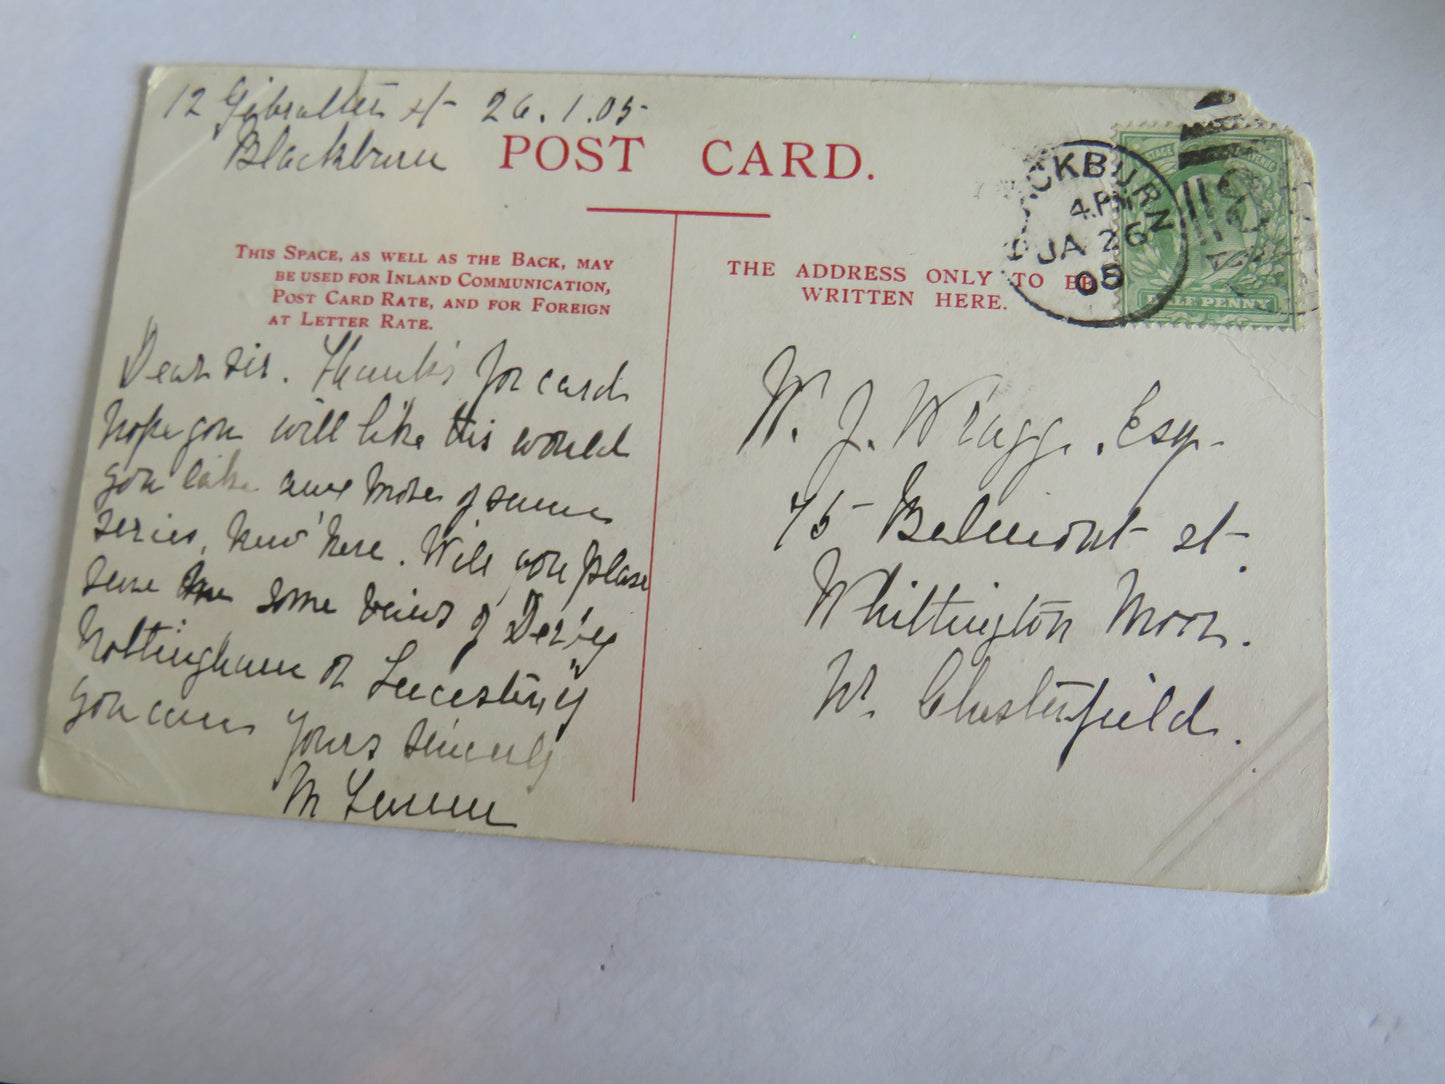 12 Gibralter st 26.1.05
Blackburn
POST CARD.
THIS SPACE, AS WELL AS THE BACK, MAY
BE USED FOR INLAND COMMUNICATION,
POST CARD RATE, AND FOR FOREIGN
AT LETTER RATE.
Dear Sir. Thanks for card
hope you will like this would
you like any more of same
series, views here. Will you please
some views of Derby
Nottingham or Leicester if
you can Yours Sincerely
M
THE ADDRESS ONLY TO BE
WRITTEN HERE.
BLACKBURN
4.PM
JA 26
05
HALF PENNY
W. J. Wragg. Esq.
75 Belmont st
Whittington Moor.
Nr. Chesterfield.